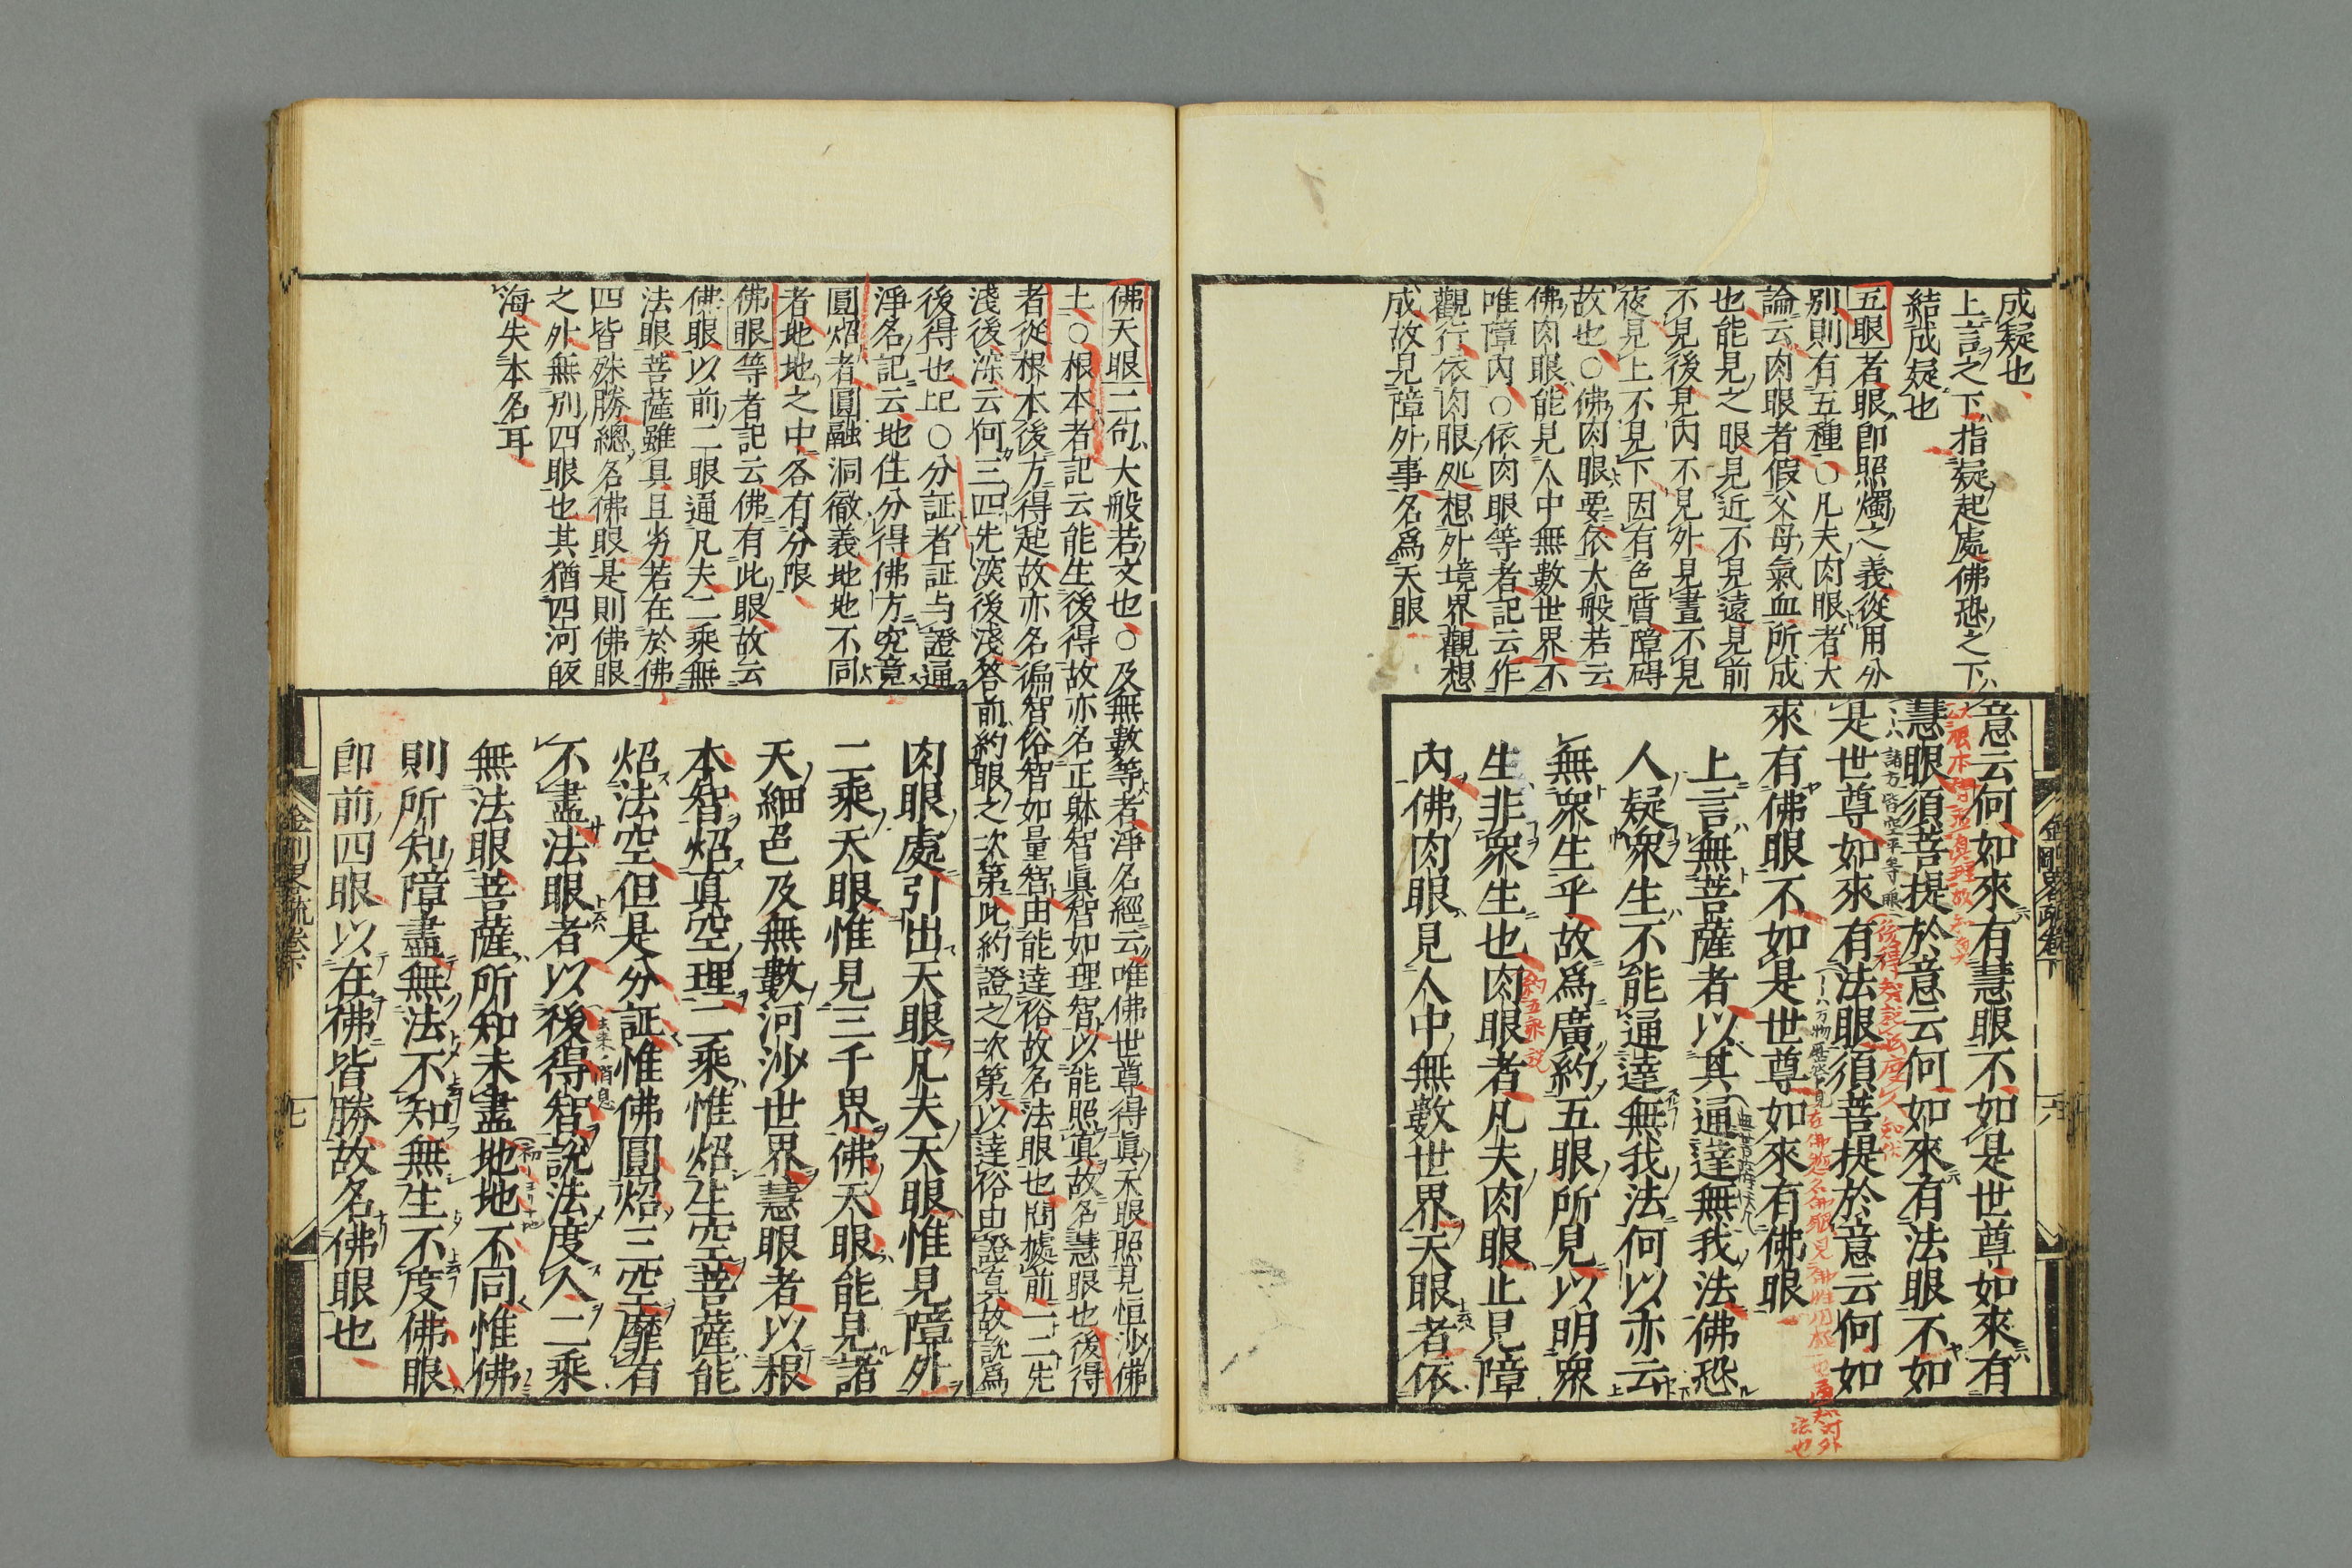 成疑也
上言之下指疑起處佛恐之下
結成疑也
五眼者眼即照燭之義從用分
別則有五種○凡夫肉眼者大
論云肉眼者假父母氣血所成
也能見之眼見近不見遠見前
不見後見內不見外見晝不見
夜見上不見下因有色質障碍
故也○佛肉眼要依大般若云
佛肉眼能見人中無數世界不
唯障內○依肉眼等者記云作
觀行依肉眼処想外境界觀想
成故見障外事名爲天眼
意云何如來有慧眼不如是世尊如來有
慧眼須菩提於意云何如來有法眼不如
是世尊如來有法眼須菩提於意云何如
來有佛眼不如是世尊如來有佛眼
上言無菩薩者以其通達無我法佛恐
人疑衆生不能通達無我法何以亦云
無衆生乎故爲廣約五眼所見以明衆
生非衆生也肉眼者凡夫肉眼止見障
內佛肉眼見人中無數世界天眼者依
佛天眼二句大般若文也○及無數等者淨名經云唯佛世尊得眞天眼照見恒沙佛
土○根本者記云能生後得故亦名正躰智眞智如理智以能照眞故名慧眼也後得
者從根本後方得起故亦名徧智俗智如量智由能達俗故名法眼也問據前一二先
淺後深云何三四先深後淺答前約眼之次第此約證之次第以達俗由證眞故說爲
後得也上記○分証者証与證通
淨名記云地住分得佛方究竟
圓炤者圓融洞徹義地地不同
者地地之中各有分限
佛眼等者記云佛有此眼故云
佛眼以前二眼通凡夫二乘無
法眼菩薩雖具且劣若在於佛
四皆殊勝總名佛眼是則佛眼
之外無別四眼也其猶四河皈
海失本名耳
肉眼處引出天眼凡夫天眼惟見障外
二乘天眼惟見三千界佛天眼能見諸
天細色及無數河沙世界慧眼者以根
本智炤眞空理二乘惟炤生空菩薩能
炤法空但是分証惟佛圓炤三空靡有
不盡法眼者以後得智說法度人二乘
無法眼菩薩所知未盡地地不同惟佛
則所知障盡無法不知無生不度佛眼
即前四眼以在佛皆勝故名佛眼也